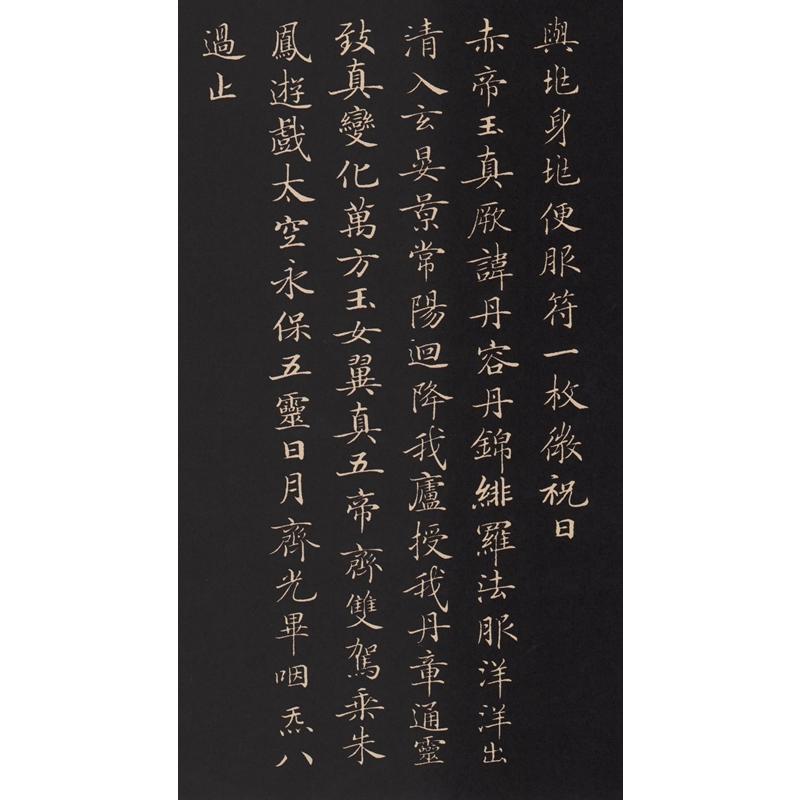 與兆身兆便服符一枚微祝曰
赤帝玉真厥諱丹容丹錦緋羅法服洋洋出
清入玄晏景常陽迴降我廬授我丹章通靈
致真變化萬方玉女翼真五帝齊雙駕乘朱
鳳遊戲太空永保五靈日月齊光畢咽炁八
過止